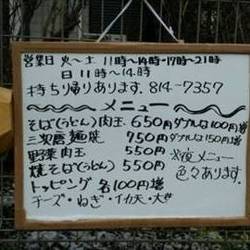 営業日 火〜土 11時〜14時・17時〜21時
日 11時〜14時
持ち帰りあります。814-7357
メニュー
そば(うどん)肉玉 650円 ダブルは100円増
三次唐麺焼 750円 ダブルは150円増
野菜肉玉 550円
焼そば(うどん) 550円
※夜メニュー
色々あります。
トッピング 各100円増
チーズ・ねぎ・イカ天・大葉